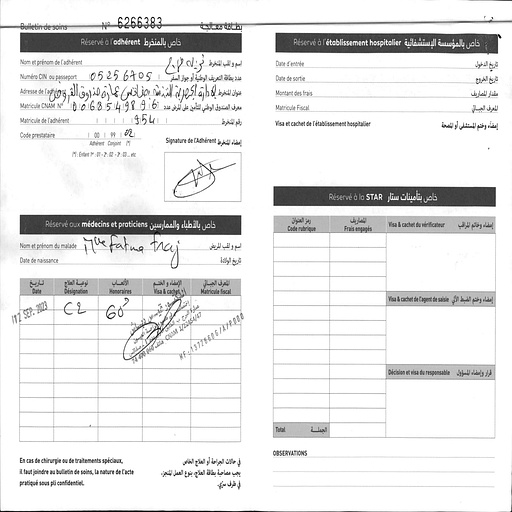 Bulletin de soins N° 6266383 بطاقة معالجة
Réservé à l'adhérent خاص بالمنخرط
Nom et prénom de l'adhérent اسم و لقب المنخرط
Numéro CIN ou passeport 05256705 عدد بطاقة التعريف الوطنية أو جواز السفر
Adresse de l'adhérent عنوان المنخرط
Matricule CNAM N°
Matricule de l'adhérent 954 رقم المنخرط
Code prestataire 00 99 02
Adhérent Conjoint (*)
(*) : Enfant 1er : 01 - 2e : 02 - 3e : 03 ... etc
Signature de l'Adhérent إمضاء المنخرط
Réservé aux médecins et praticiens خاص بالأطباء والممارسين
Nom et prénom du malade Mme Fatma Fraj اسم و لقب المريض
Date de naissance تاريخ الولادة
تاريخ Date
نوعية العلاج Désignation
الأتعاب Honoraires
الإمضاء و الختم Visa & cachet
المعرف الجبائي Matricule fiscal
12 SEP. 2023 C2 60
En cas de chirurgie ou de traitements spéciaux,
il faut joindre au bulletin de soins, la nature de l'acte
pratiqué sous pli confidentiel.
في حالات الجراحة أو العلاج الخاص
يجب مصاحبة بطاقة العلاج، بنوع العمل المنجز،
في ظرف سري.
Réservé à l'établissement hospitalier خاص بالمؤسسة الإستشفائية
Date d'entrée تاريخ الدخول
Date de sortie تاريخ الخروج
Montant des frais مقدار المصاريف
Matricule Fiscal المعرف الجبائي
Visa et cachet de l'établissement hospitalier إمضاء وختم المستشفى أو المصحة
Réservé à la STAR خاص بتأمينات ستار
رمز العنوان Code rubrique
المصاريف Frais engagés
Visa & cachet du vérificateur إمضاء وخاتم المراقب
Visa & cachet de l'agent de saisie إمضاء وختم الضبط الآلي
Décision et visa du responsable قرار وإمضاء المسؤول
Total الجملة
OBSERVATIONS